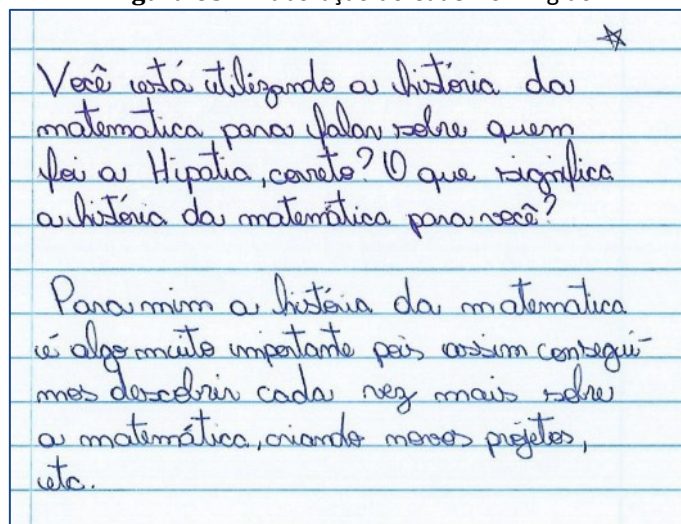 Você está utilizando a história da
matematica para falar sobre quem
foi a Hipatia, correto? O que significa
a história da matemática para você?
Para mim a história da matematica
é algo muito importante pois assim consegui-
mos descobrir cada vez mais sobre
a matemática, criando novos projetos,
etc.